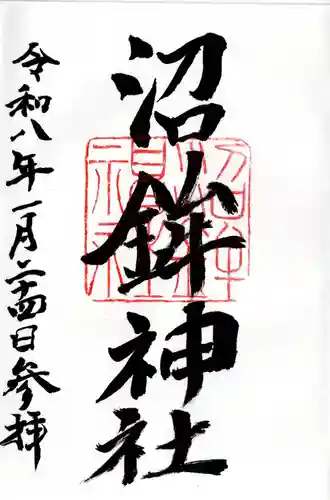 沼鉾神社
令和八年一月二十四日参拝